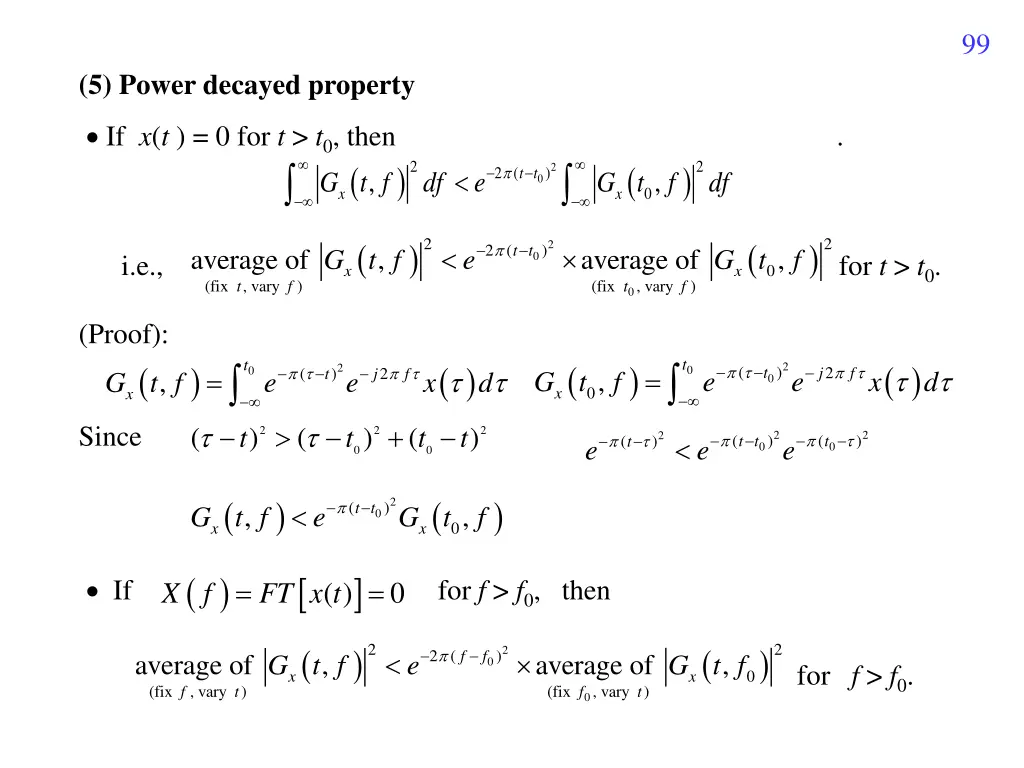 99
(5) Power decayed property
• If x(t ) = 0 for t > t₀, then .
∫_{−∞}^{∞} |Gₓ(t, f)|² df < e^{−2π(t−t₀)²} ∫_{−∞}^{∞} |Gₓ(t₀, f)|² df
i.e., average of |Gₓ(t, f)|² < e^{−2π(t−t₀)²} × average of |Gₓ(t₀, f)|² for t > t₀.
(fix t, vary f) (fix t₀, vary f)
(Proof):
Gₓ(t, f) = ∫_{−∞}^{t₀} e^{−π(τ−t)²} e^{−j2π fτ} x(τ)dτ Gₓ(t₀, f) = ∫_{−∞}^{t₀} e^{−π(τ−t₀)²} e^{−j2π fτ} x(τ)dτ
Since (τ − t)² > (τ − t₀)² + (t₀ − t)² e^{−π(t−τ)²} < e^{−π(t−t₀)²} e^{−π(t₀−τ)²}
Gₓ(t, f) < e^{−π(t−t₀)²} Gₓ(t₀, f)
• If X(f) = FT[x(t)] = 0 for f > f₀, then
average of |Gₓ(t, f)|² < e^{−2π(f−f₀)²} × average of |Gₓ(t, f₀)|² for f > f₀.
(fix f, vary t) (fix f₀, vary t)